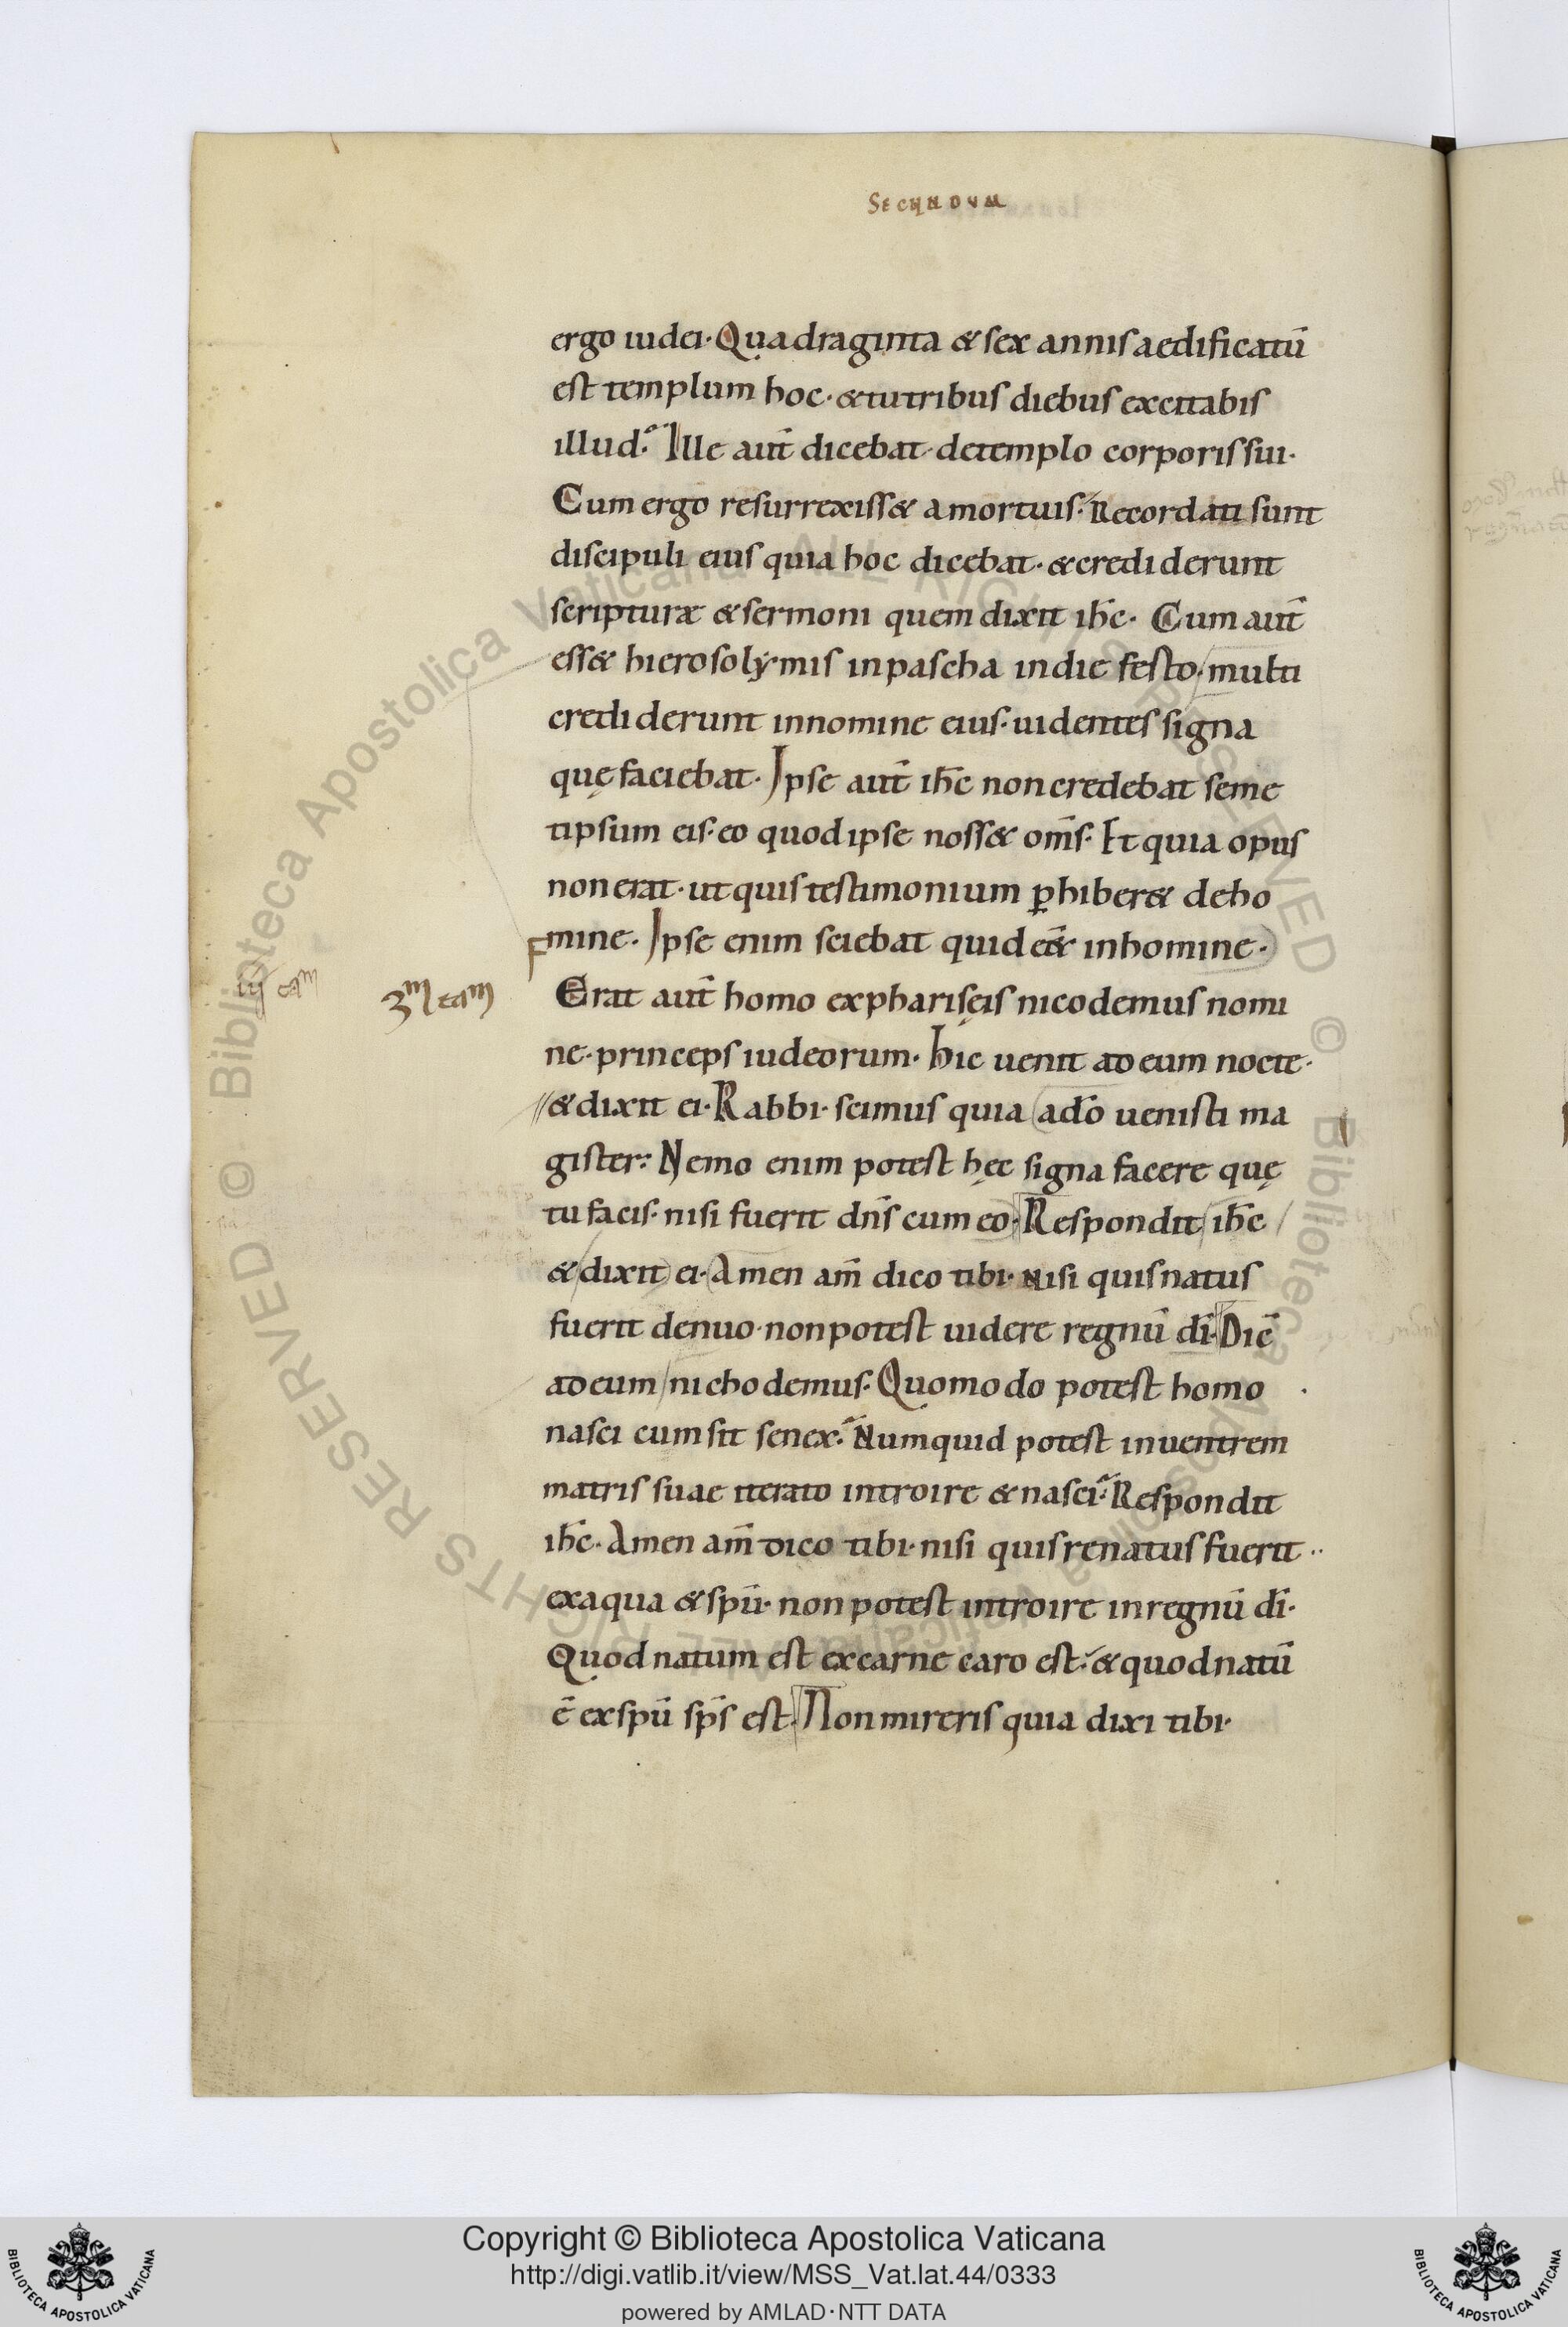 SECUNDUM
ergo iudei· Quadraginta & sex annis aedificatū
est templum hoc· & tu tribus diebus excitabis
illud? Ille aut̄ dicebat de templo corporis sui·
Cum ergo resurrexiss& a mortuis· Recordati sunt
discipuli eius quia hoc dicebat· & crediderunt
scripturæ & sermoni quem dixit ih̄c· Cum aut̄
ess& hierosolẏmis in pascha in die festo· multi
crediderunt in nomine eius· uidentes signa
quę faciebat· Ipse aut̄ ih̄c non credebat seme
tipsum eis· eo quod ipse noss& om̄s· Et quia opus
non erat· ut quis testimonium ꝑhiber& de ho
mine· Ipse enim sciebat quid eēt in homine·
iij cam
3m cam
Erat aut̄ homo ex pharisęis nicodemus nomi
ne· princeps iudeorum· Hic uenit ad eum nocte·
& dixit ei· Rabbi· scimus quia a dō uenisti ma
gister· Nemo enim potest hęc signa facere quę
tu facis· nisi fuerit dn̄s cum eo· Respondit ih̄c
& dixit ei· Amen am̄ dico tibi· nisi quis natus
fuerit denuo· non potest uidere regnū dī· Dic̄
ad eum nichodemus· Quomodo potest homo
nasci cum sit senex? Numquid potest in uentrem
matris suae iterato introire & nasci? Respondit
ih̄c· Amen am̄ dico tibi· nisi quis renatus fuerit
ex aqua & spū· non potest introire in regnū dī·
Quod natum est ex carne caro est· & quod natū
ē ex spū sp̄s est· Non mireris quia dixi tibi·
Copyright © Biblioteca Apostolica Vaticana
http://digi.vatlib.it/view/MSS_Vat.lat.44/0333
powered by AMLAD·NTT DATA
BIBLIOTECA APOSTOLICA VATICANA
BIBLIOTECA APOSTOLICA VATICANA
© Biblioteca Apostolica Vaticana ALL RIGHTS RESERVED © Biblioteca Apostolica Vaticana ALL RIGHTS RESERVED